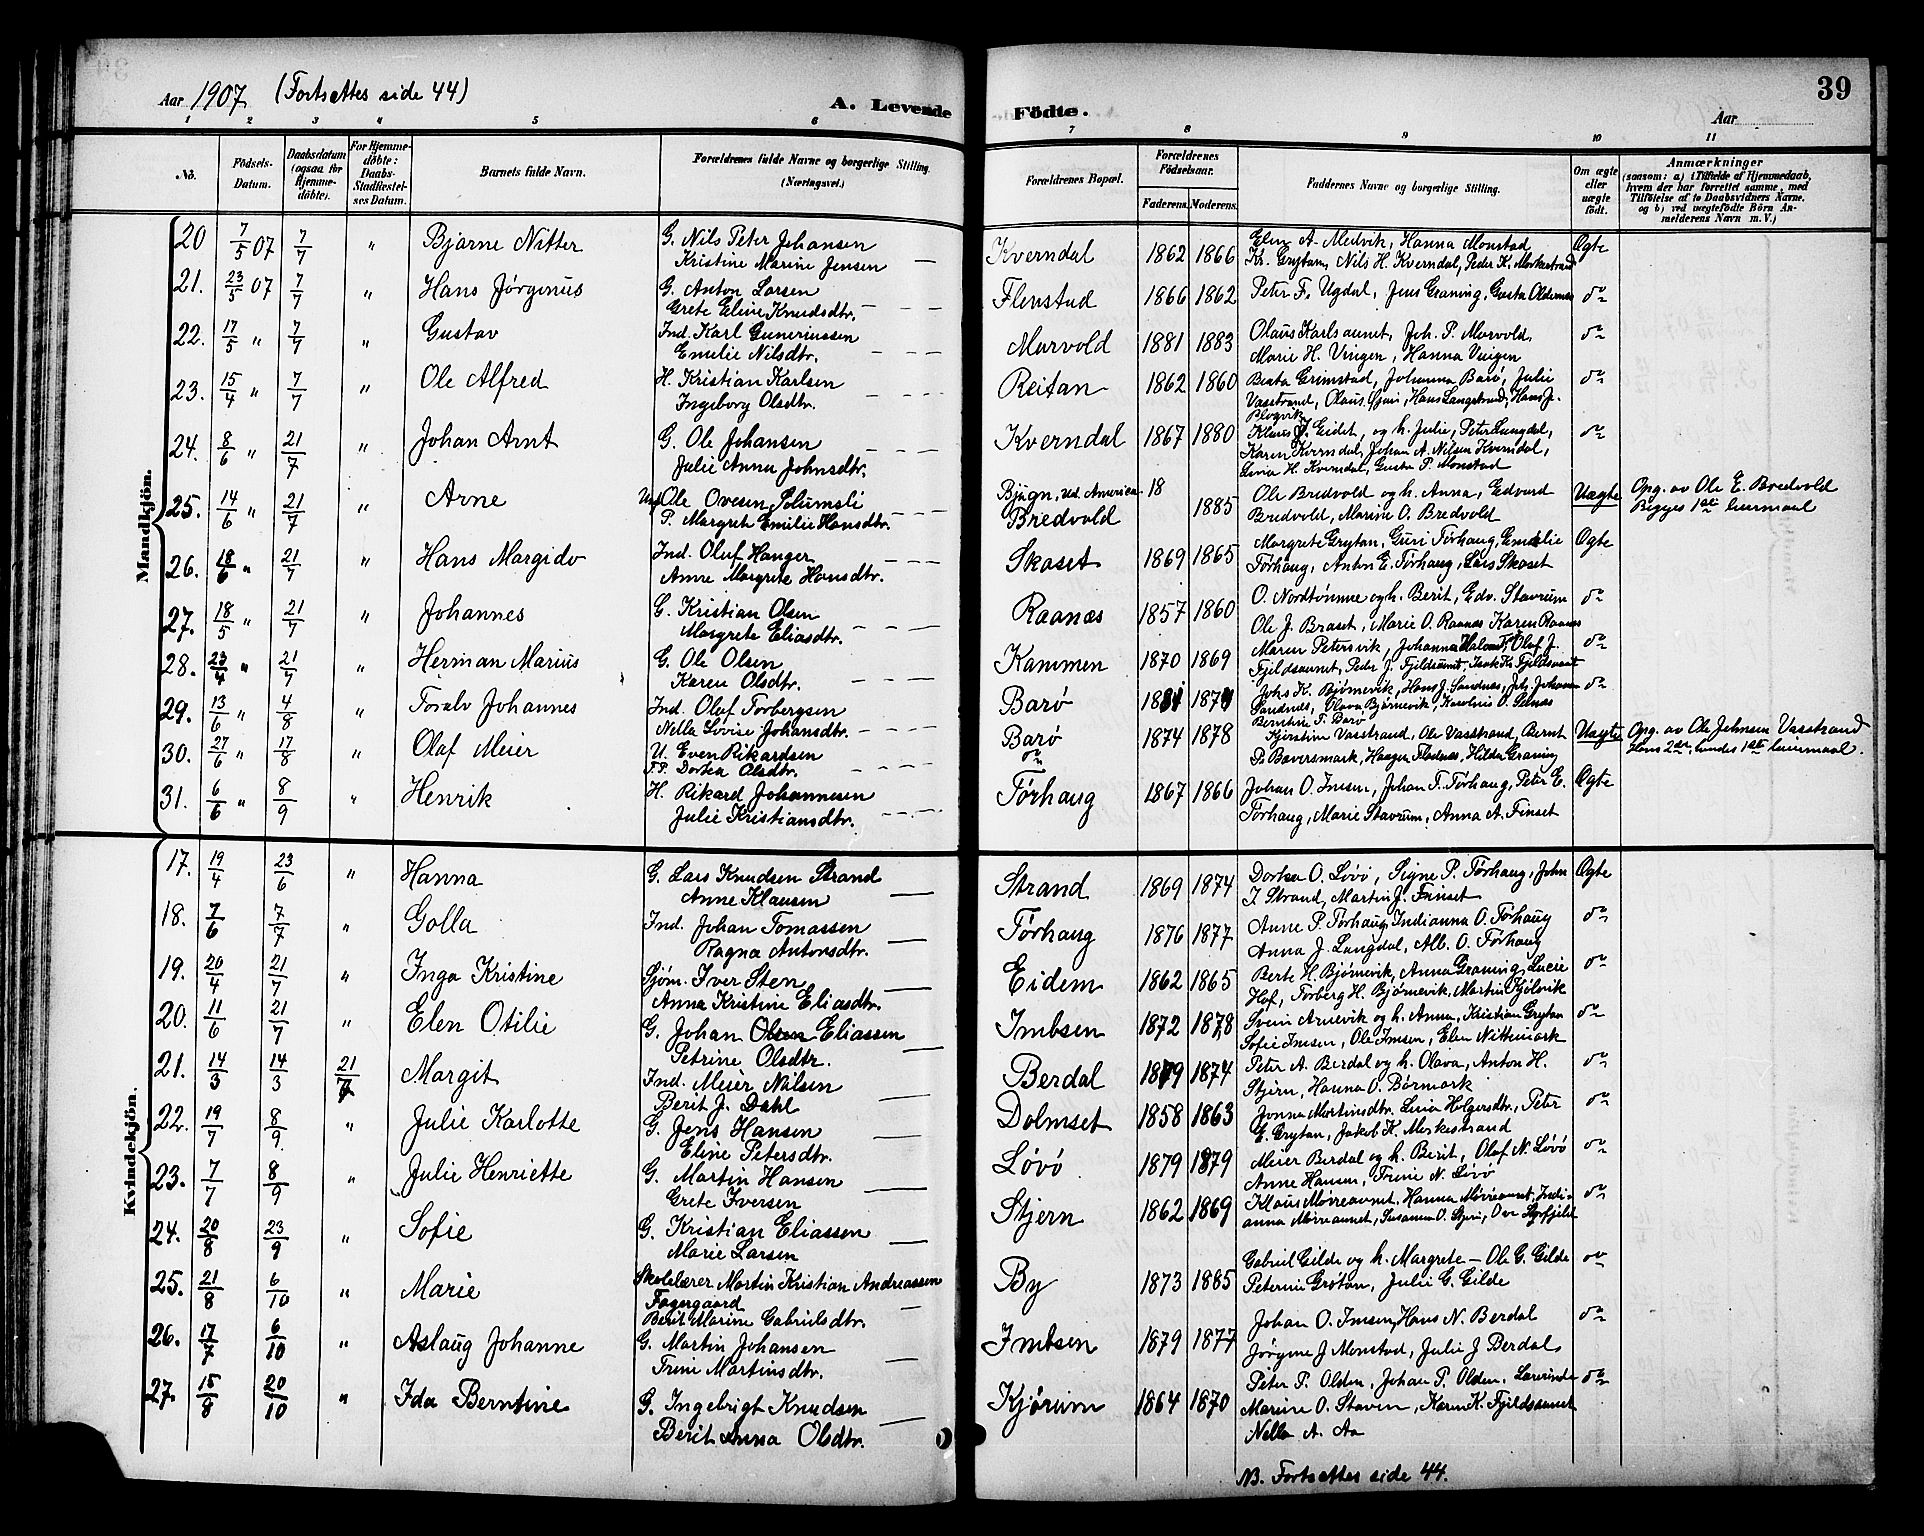 Aar 1907 (Fortsættes side 44) A. Levende Födte. Aar 39
1 2 3 4 5 6 7 8 9 10 11
No. Födsels-Datum. Daabsdatum (ogsaa for Hjemmedöbte). For Hjemmedöbte: Daabs-Stadfæstelses Datum. Barnets fulde Navn. Forældrenes fulde Navne og borgerlige Stilling. (Næringsvei.) Forældrenes Bopæl. Forældrenes Födselsaar. Faderens. Moderens. Faddernes Navne og borgerlige Stilling. Om ægte eller uægte födt. Anmærkninger (saasom: a) i Tilfælde af Hjemmedaab, hvem der har forrettet samme, med Tilföielse af to Daabsvidners Navne, og b) ved uægtefödte Börn Anmelderens Navn m. V.)
Mandkjön.
20 7/5 07 7/7 " Bjarne Nitter G. Nils Peter Johansen Kverndal 1862 1866 Elen A. Medvik, Hanna Monstad Ægte
Kristine Marine Jensen — Kr. Grytan, Nils H. Kverndal, Peder K. Morkestrand
21. 23/5 07 7/7 " Hans Jørginus G. Anton Larsen Flenstad 1866 1862 Peter F. Ugdal, Jens Graning, Gusta Oldernes do
Grete Eline Knudsdtr. — — —
22. 17/5 " 7/7 " Gustav Ind. Karl Guneriussen Murvold 1881 1883 Olaus Karlsaunet, Joh. P. Murvold, do
Emelie Nilsdtr. — — — Marie H. Vingen, Hanna Vingen
23. 15/4 " 7/7 " Ole Alfred H. Kristian Karlsen Reitan 1862 1860 Berta Grimstad, Johanna Barø, Julie do
Ingeborg Olsdtr. — — — Vasstrand, Olaus Stjærn, Hans Langstrand, Hans J.
24. 8/6 " 21/7 " Johan Arnt G. Ole Johansen Kverndal 1867 1880 Klaus J. Eidet, og h. Julie, Peter Langdal, do
Julie Anna Johnsdtr. — — — Karen Kverndal, Johan A. Nilsen Kverndal,
H. Kverndal, Gusta P. Monstad
25. 14/6 " 21/7 " Arne Ole Ovesen Plumsli Bjugn, ved America 18 Ole Bredvold og h. Anna, Edvard Uægte Opg. av Ole E. Bredvold
P. Margrete Emilie Hansdtr. — — — Bredvold 1885 Bredvold, Marine O. Bredvold Begges 1ste leiermaal
26. 18/6 " 21/7 " Hans Margido Ind. Oluf Hanger Skaset 1869 1865 Margrete Grytan, Guri Tørhaug, Emelie Ægte
Anne Margrete Hansdtr. — — — Tørhaug, Anton E. Tørhaug, Lars Skaset
27. 18/5 " 21/7 " Johannes G. Kristian Olsen Raanæs 1857 1860 O. Nordtømme og h. Berit, Edv. Stavrum do
Margrete Eliasdtr. — — — Ole J. Braset, Marie O. Raanæs Karen Raanæs
28. 23/4 " 21/7 " Herman Marius G. Ole Olsen Kammen 1870 1869 Maren Petersvik, Johanna Olaf J. do
Karen Olsdtr. — — — Fjeldsaunet, Peder J. Fjeldsaunet, Isak Kr. Fjeldsaunet
29. 13/6 " 4/8 " Toralv Johannes Ind. Oluf Torbergsen Barø Johs K. Bjørnevik, Hans J. Sandnæs, Joh. Johansen do
Nella Lovise Johansdtr. — — — Sandnæs, Olava Bjørnevik, Karolius O. Selnæs
Berntine T. Barø
30. 27/6 " 17/8 " Olaf Meier U. Even Rikardsen Barø 1874 1878 Kjerstine Vasstrand, Ole Vasstrand, Bernt Uægte Opg. av Ole Johnsen Vasstrand
Dortea Olsdtr. — — — do P. Baversmark, Haagen Flodnæs, Hilda Graning Hans 2det, hendes 1ste leiermaal.
31. 6/6 " 8/9 " Henrik H. Rikard Johannesen Tørhaug 1867 1866 Johan O. Imsen, Johan T. Tørhaug, Peter E. Ægte
Julie Kristiansdtr. — — — Tørhaug, Marie Stavrum, Anna A. Finset
Kvindekjön.
17. 19/4 23/6 " Hanna G. Lars Knudsen Strand Strand 1869 1874 Dortea O. Løvø, Signe P. Tørhaug, John Ægte
Anne Klausen — J. Strand, Martin J. Finset
18. 7/6 7/7 " Golla Ind. Johan Tomassen Tørhaug 1876 1877 Anne P. Tørhaug, Indianna O. Tørhaug do
Ragna Antonsdtr. — Anna J. Langdal, Alb. O. Tørhaug
19. 20/4 21/7 " Inga Kristine Sjøm. Iver Sten Eidem 1862 1865 Berte H. Bjørnevik, Anna Graning, Lucie do
Anna Kristine Eliasdtr. — Hof, Torberg H. Bjørnevik, Martin Kjølvik
20. 11/6 21/7 " Elen Otilie G. Johan Olsen Eliassen Imbsen 1872 1878 Svein Arnevik og h. Anna, Kristian Grytan do
Petrine Olsdtr. — Sofie Imsen, Ole Imsen, Elen Nittemark
21. 14/3 14/3 21/7 Margit Ind. Meier Nilsen Berdal 1879 1874 Peter A. Berdal og h. Olava, Anton H. do
Berit J. Dahl — Stjern, Hanna O. Børmark
22. 19/7 8/9 " Julie Karlotte G. Jens Hansen Dolmset 1858 1863 Jonna Martinsdtr. Lina Holgersdtr, Peter do
Eline Petersdtr. — E. Grytan, Jakob K. Morkestrand
23. 7/7 8/9 " Julie Henriette G. Martin Hansen Løvø 1879 1879 Meier Berdal og h. Berit, Olaf N. Løvø do
Grete Iversen — Anne Hansen, Trine N. Løvø
24. 20/8 23/9 " Sofie G. Kristian Eliassen Stjern 1862 1869 Klaus Mørreaunet, Hanna Mørreaunet, Indi- do
Marie Larsen — anna Mørreaunet, Susanna O. Stjern,
25. 21/8 6/10 " Marie Skolelærer Martin Kristian Andreassen By 1873 1885 Gabriel Gilde og h. Margrete — Ole G. Gilde do
Fagergaard — Peterine Grøtan, Julie G. Gilde
Berit Marine Gabrielsdtr.
26. 17/7 6/10 " Aslaug Johanne G. Martin Johansen Imbsen 1879 1877 Johan O. Imsen, Hans N. Berdal do
Trine Martinsdtr. — Jørgine J Monstad, Julie J Berdal,
27. 15/8 20/10 " Ida Berntine G. Ingebrigt Knudsen Kjørum 1864 1870 Peter P. Olden, Johan P. Olden, do
Berit Anna Olsdtr. — Marine O. Staven, Karen K. Fjeldsaunet
Nella A. Aa
NB. Fortsættes side 44.